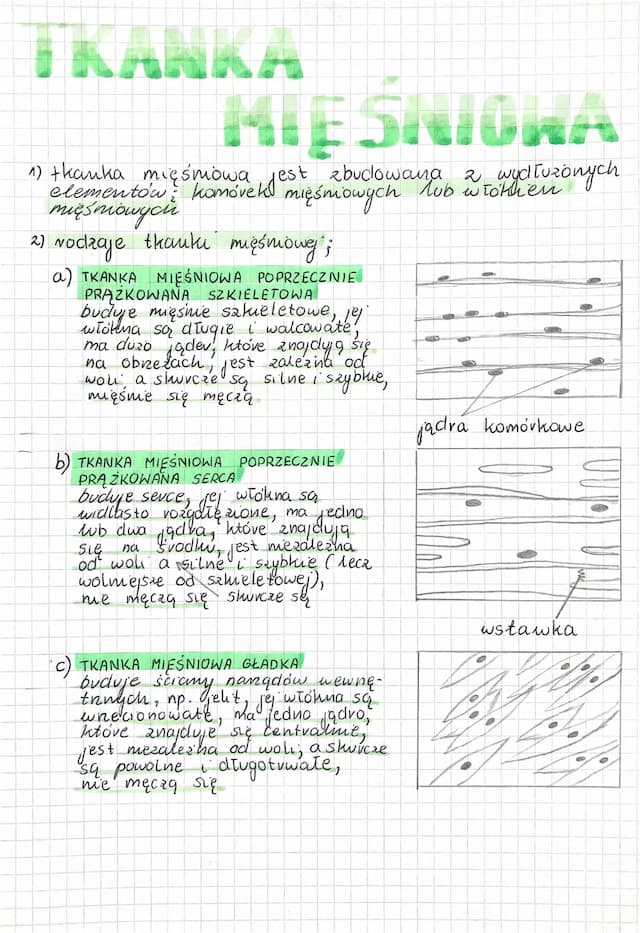 TKANKA
MIĘŚNIOWA
1) tkanka mięśniowa jest zbudowana z wydłużonych
elementów; komórek mięśniowych lub włókien
mięśniowych
2) rodzaje tkanki mięśniowej;
a) TKANKA MIĘŚNIOWA POPRZECZNIE
PRĄŻKOWANA SZKIELETOWA
buduje mięśnie szkieletowe, jej
włókna są długie i walcowate,
ma dużo jąder, które znajdują się
na obrzeżach, jest zależna od
woli a skurcze są silne i szybkie,
mięśnie się męczą
jądra komórkowe
b) TKANKA MIĘŚNIOWA POPRZECZNIE
PRĄŻKOWANA SERCA
buduje serce, jej włókna są
widlasto rozgałęzione, ma jedno
lub dwa jądra, które znajdują
się na środku, jest niezależna
od woli a silne i szybkie (lecz
wolniejsze od szkieletowej),
nie męczą się skurcze są
wstawka
c) TKANKA MIĘŚNIOWA GŁADKA
buduje ściany narządów wewnę-
trznych, np. jelit, jej włókna są
wrzecionowate, ma jedno jądro,
które znajduje się centralnie,
jest niezależna od woli, a skurcze
są powolne i długotrwałe,
nie męczą się